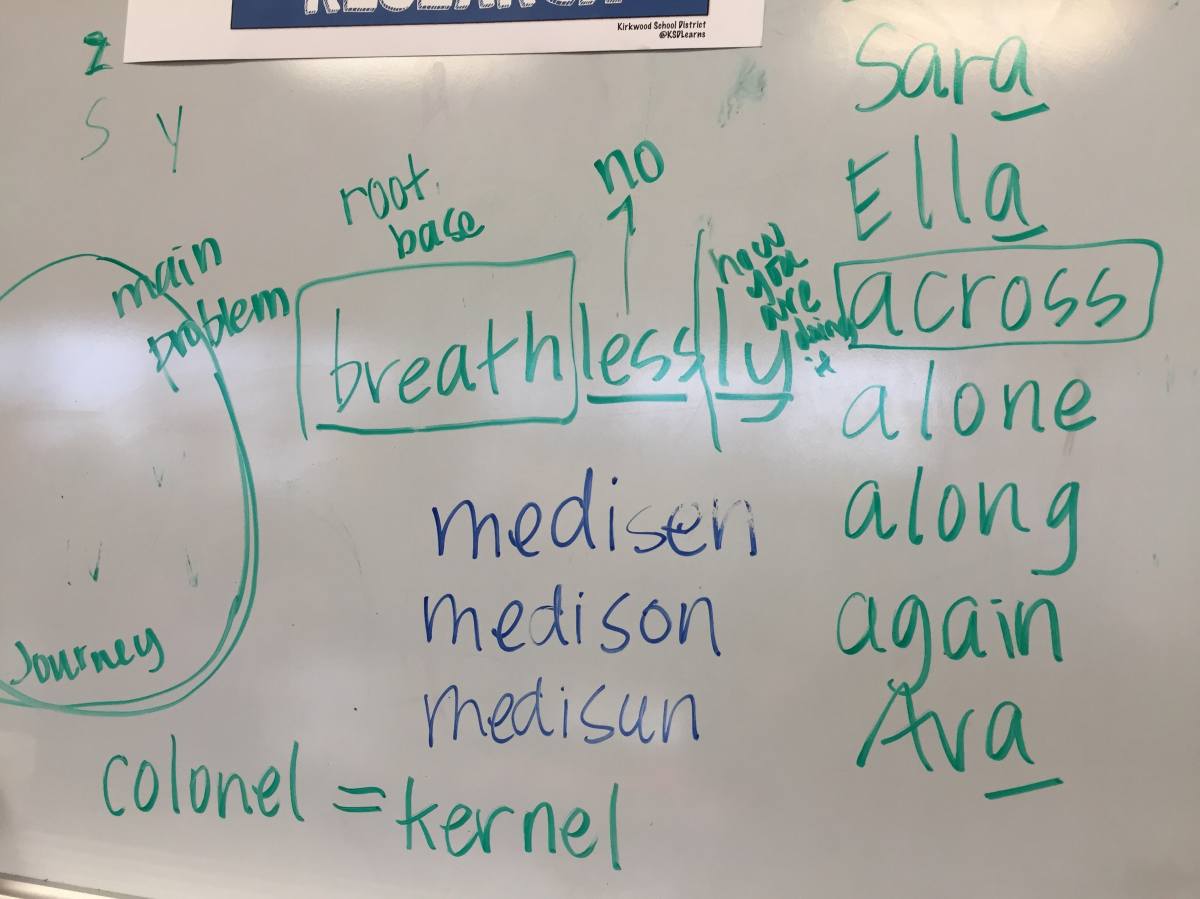 RESEARCH
Kirkwood School District
@KSDLearns
S y
main
problem
Journey
root
base
no
how
you
are
doing
it
breathlessly
medisen
medison
medisun
colonel = kernel
Sara
Ella
across
alone
along
again
Ava